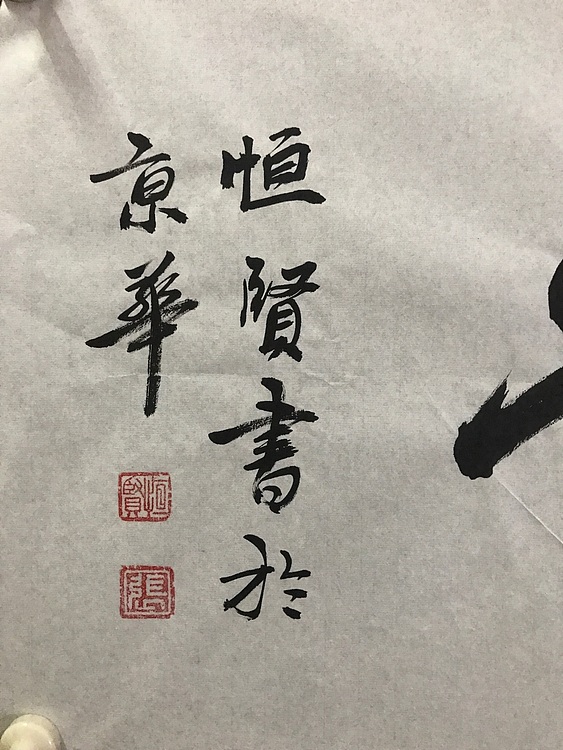 恒賢書於
京華
恒賢